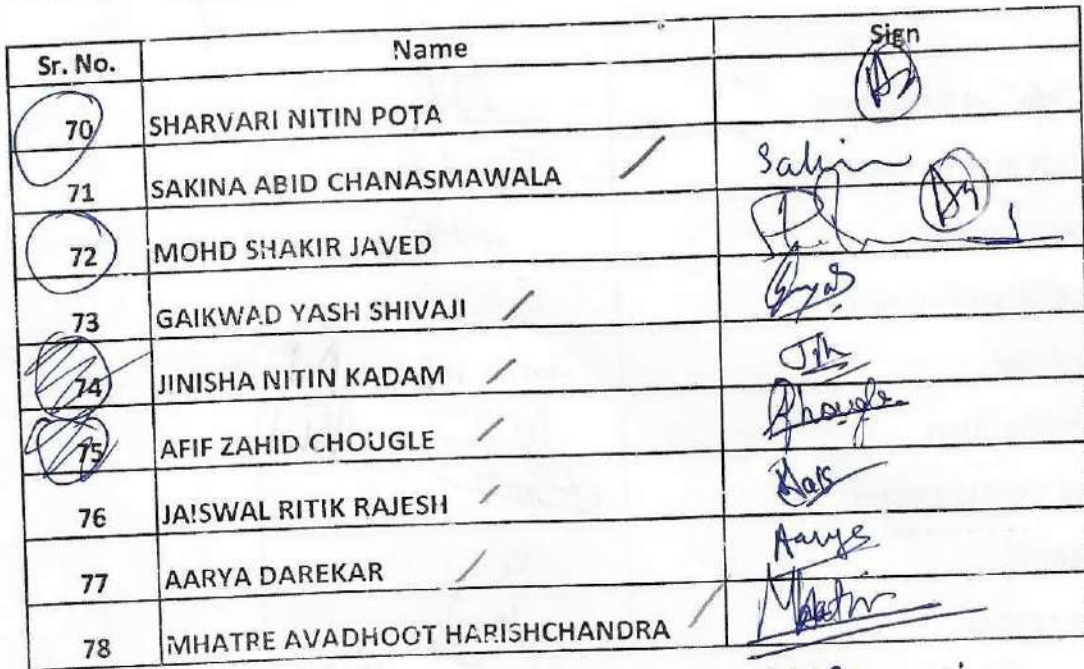 Sr. No. Name Sign
70 SHARVARI NITIN POTA Ab
71 SAKINA ABID CHANASMAWALA Sakina
72 MOHD SHAKIR JAVED Ab
73 GAIKWAD YASH SHIVAJI
74 JINISHA NITIN KADAM
75 AFIF ZAHID CHOUGLE Chougle
76 JAISWAL RITIK RAJESH
77 AARYA DAREKAR Aarya
78 MHATRE AVADHOOT HARISHCHANDRA Mhatre